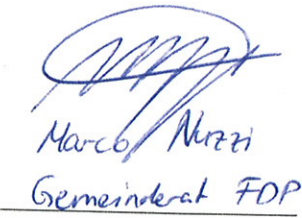 Marco Nuzzi
Gemeinderat FDP